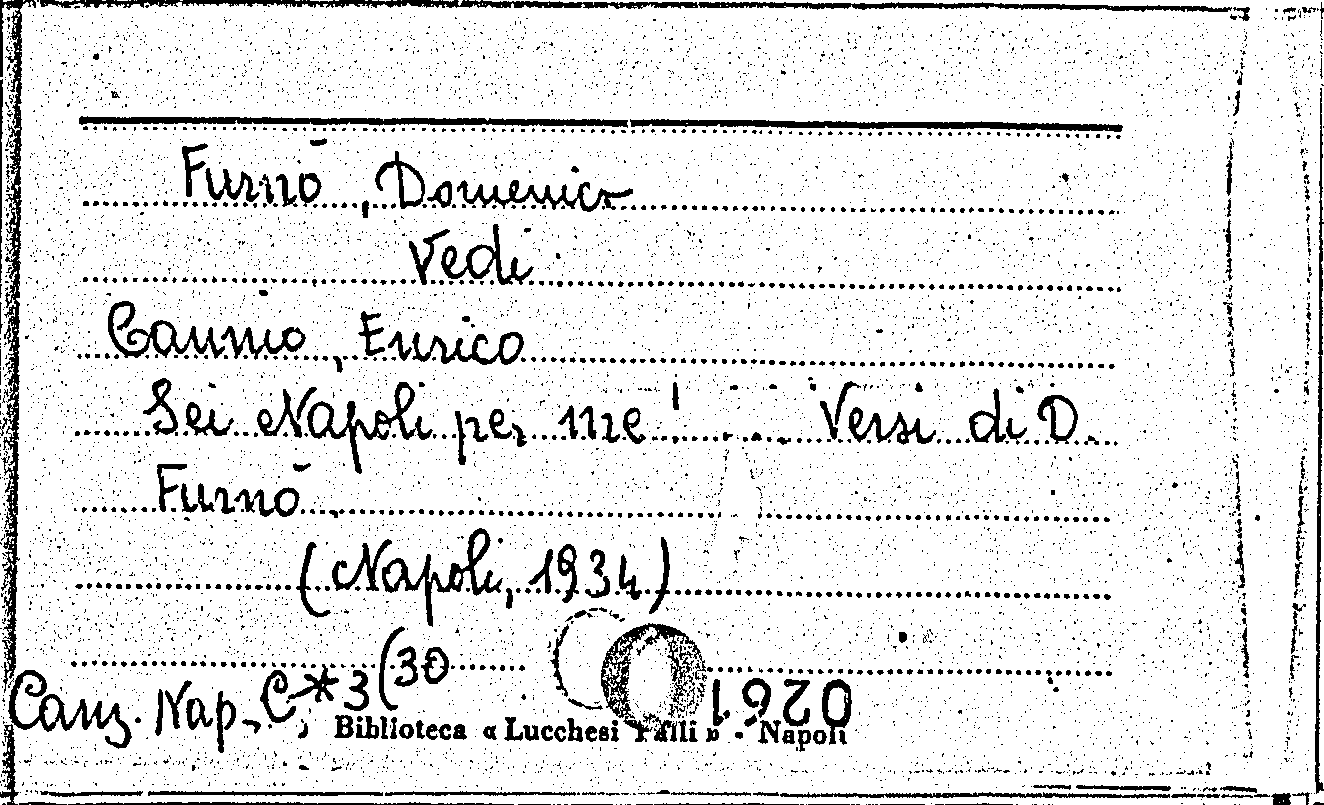 Furnò, Domenico
Vedi
Cannio, Enrico
Sei Napoli per me! .... Versi di D.
Furnò.
(Napoli, 1934)
Canz. Nap., C*3(30
0261
Biblioteca « Lucchesi Palli » - Napoli